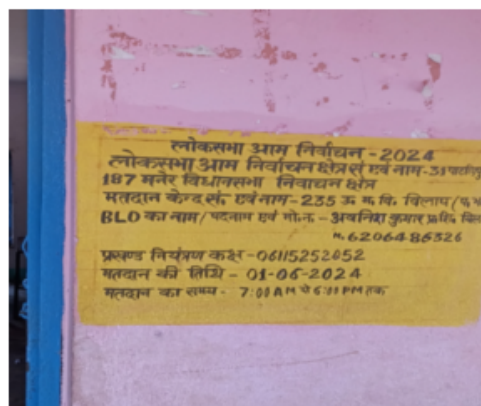 लोकसभा आम निर्वाचन - 2024
लोकसभा आम निर्वाचन क्षेत्र सं एवं नाम - 31 पाटलिपु
187 मनेर विधानसभा निर्वाचन क्षेत्र
मतदान केन्द्र सं० एवं नाम - 235 उ म वि
BLO का नाम/पदनाम एवं मो.न. - अवनिश कुमार
M. 6206486326
प्रखण्ड नियंत्रण कक्ष - 06115252052
मतदान की तिथि - 01-06-2024
मतदान का समय - 7:00 AM से 6:00 PM तक